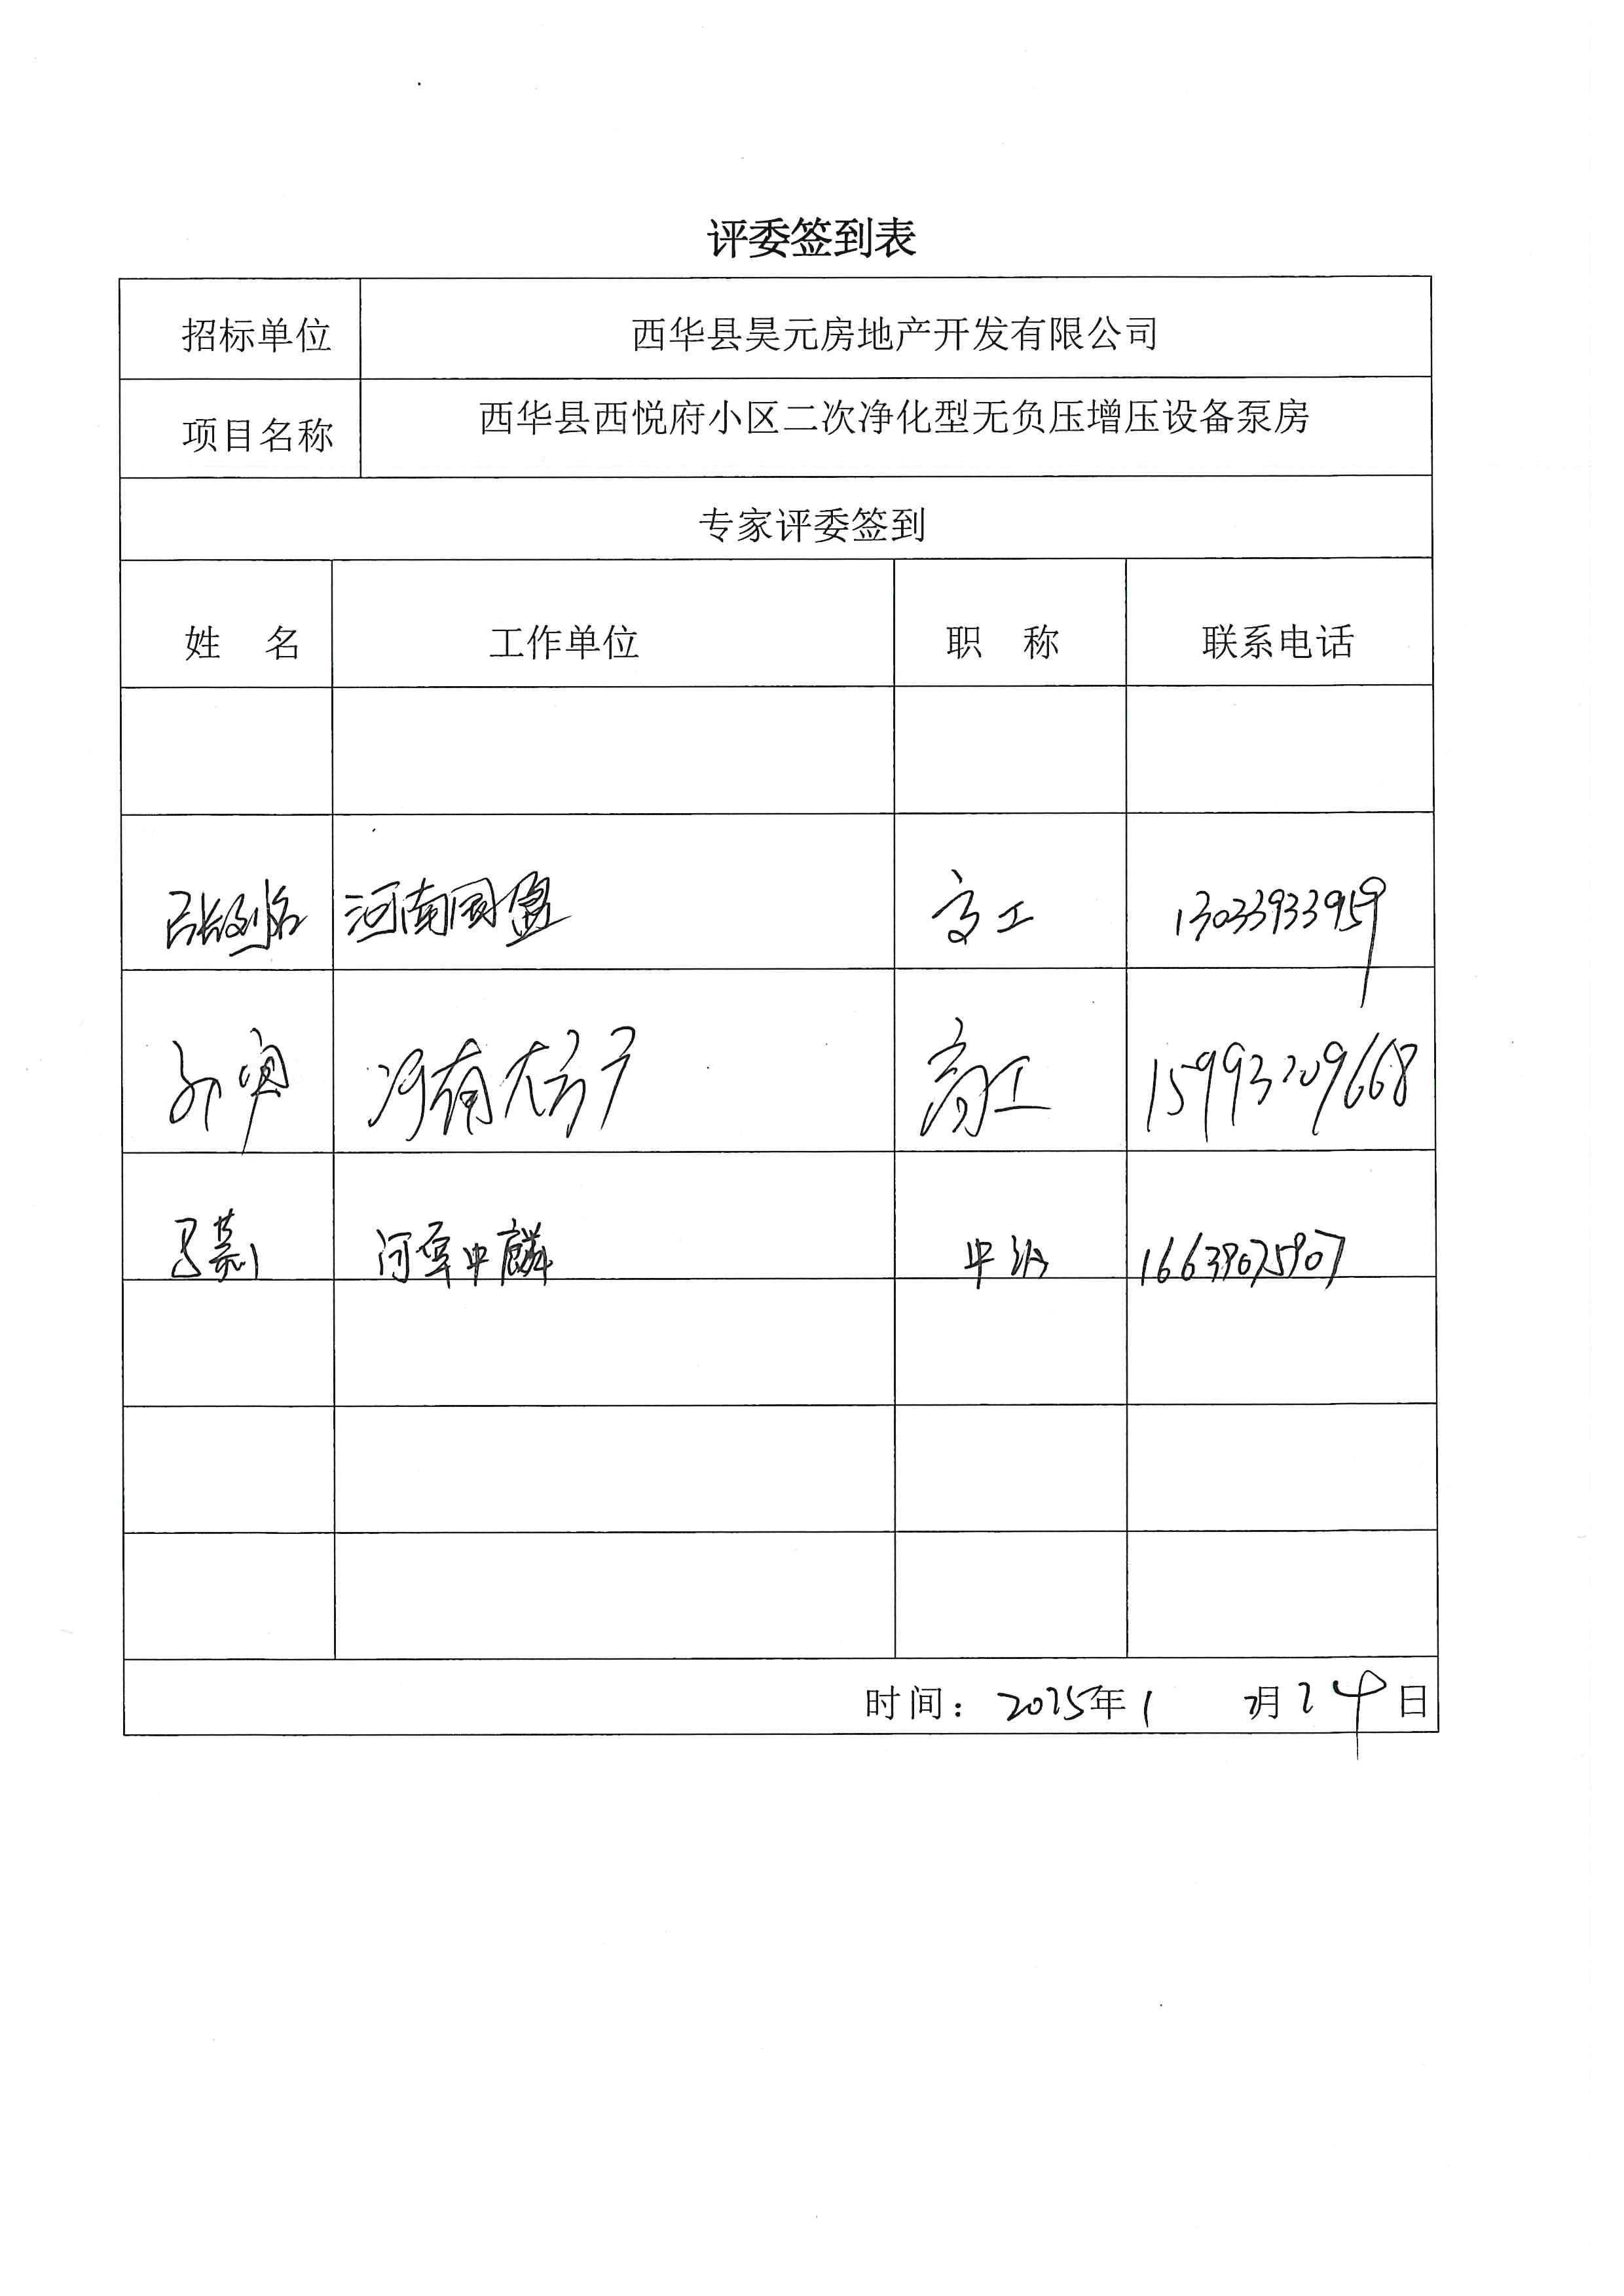 评委签到表
招标单位 西华县昊元房地产开发有限公司
项目名称 西华县西悦府小区二次净化型无负压增压设备泵房
专家评委签到
姓 名 工作单位 职 称 联系电话
河南国 高工 13033933959
河南大 高工 15993209668
中麟 中级 16639075907
时间：2025年1 月24日